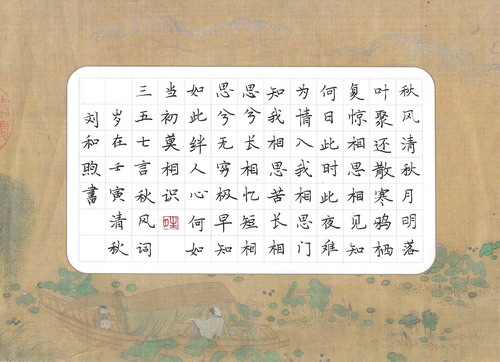 秋风清秋月明落
叶聚还散寒鸦栖
复惊相思相见知
何日此时此夜难
为情入我相思门
知我相思苦长相
思兮长相忆短相
思兮无穷极早知
如此绊人心何如
当初莫相识
三五七言秋风词
岁在壬寅清秋
刘和煦書